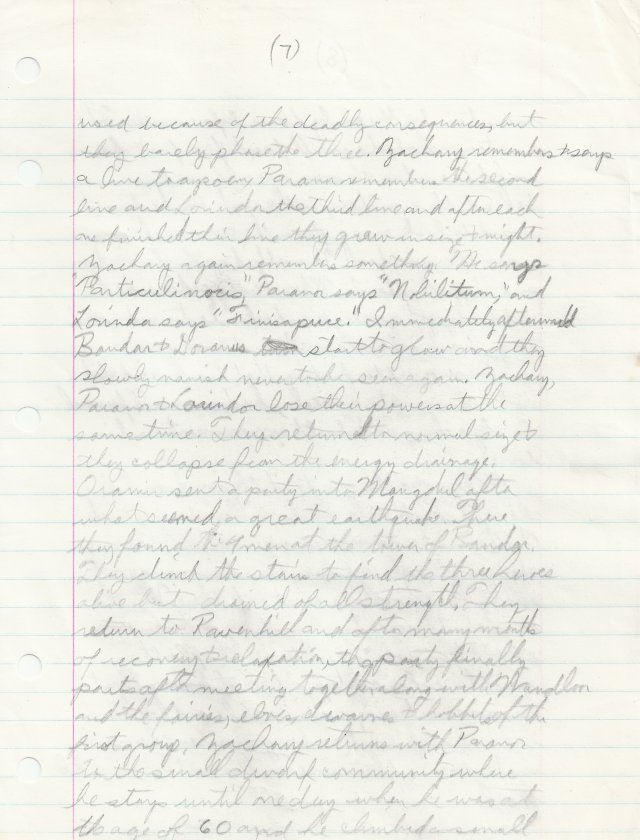 (7)
used because of the deadly consequences, but
they barely phase the three. Zachary remembers & says
a line to a poem, Paranor remembers the second
line and Lorindor the third line and after each
one finished their line they grew in size & might.
Zachary again remembers something. He says
"Particulinocis," Paranor says "Nobilitum," and
Lorinda says "Finisapuce." Immediately afterward
Bandar & Doranus start to glow and they
slowly vanish never to be seen again. Zachary,
Paranor & Lorindor lose their powers at the
same time. They returned to normal size &
they collapse from the energy drainage.
Oramir sent a party into Mangdul after
what seemed a great earthquake. There
they found the 4 men at the tower of Bandar.
They climb the stairs to find the three heroes
alive but drained of all strength. They
return to Ravenhill and after many months
of recovery & relaxation, the party finally
parts after meeting together along with Wandlor
and the fairies, elves, dwarves & hobbits of the
first group. Zachary returns with Paranor
to the small dwarf community where
he stays until one day when he was at
the age of 60 and he climbed a small